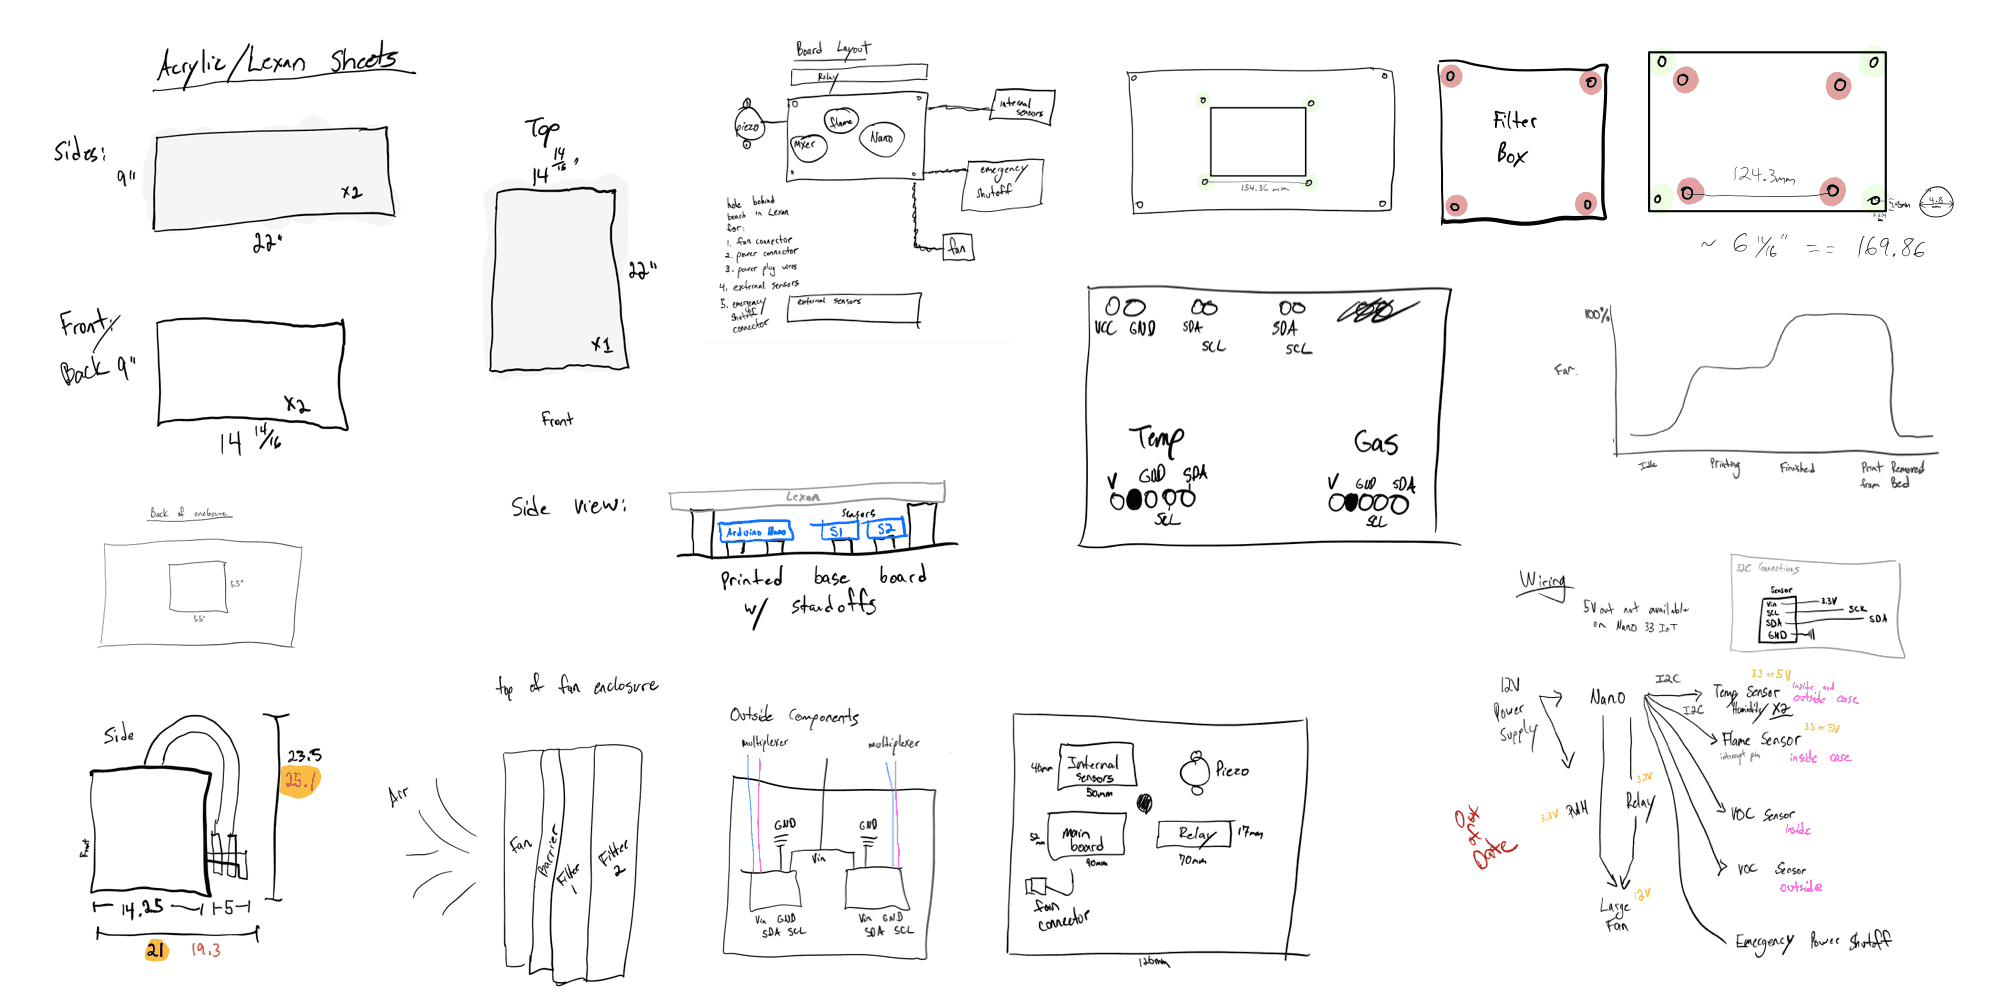 Acrylic/Lexan Sheets
Sides:
9"
x2
22"
Front/
Back
9"
x2
14 14/16
Top
14 14/16"
22"
x1
Front
Board Layout
Relay
piezo
flame
Mxer
Nano
internal
sensors
emergency
shutoff
fan
hole behind
board in Lexan
for:
1. fan connector
2. power connector
3. power plug wires
4. external sensors
5. emergency
shutoff
connector
external sensors
154.36 mm
Filter
Box
124.3mm
4.8
mm
~ 6 11/16" == 169.86
VCC GND
SDA
SCL
SDA
SCL
Temp
V GND SDA
SCL
Gas
V GND SDA
SCL
100%
Fan
Idle
Printing
Finished
Print Removed
from Bed
Back of enclosure
5.5"
5.5"
Side view:
Lexan
Sensors
Arduino Nano
S1
S2
Printed base board
w/ standoffs
Wiring
5V out not available
on Nano 33 IoT
I2C Connections
Sensor
Vin
SCL
SDA
GND
3.3V
SCK
SDA
Side
Front
23.5
25.1
14.25
5
21
19.3
top of fan enclosure
Air
Fan
Barrier
Filter
1
Filter
2
Outside Components
multiplexer
multiplexer
GND
GND
Vin
Vin GND
SDA SCL
Vin GND
SDA SCL
Internal
sensors
40mm
50mm
Piezo
main
board
52
mm
90mm
Relay
17mm
70mm
fan
connector
126mm
12V
Power
Supply
Nano
I2C
I2C
3.3 or 5V
Temp Sensor
Humidity x2
inside and
outside case
3.3 or 5V
Flame Sensor
interrupt pin
inside case
3.3V
PWM
3.3V
Relay
VOC Sensor
inside
VOC Sensor
outside
12V
Large
Fan
Emergency Power Shutoff
Out of
Date